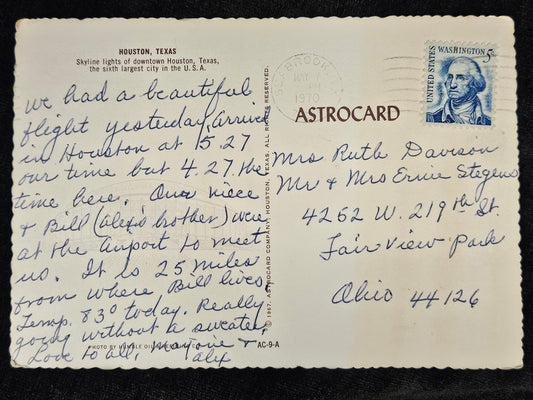 HOUSTON, TEXAS
Skyline lights of downtown Houston, Texas,
the sixth largest city in the U.S.A.
we had a beautiful
flight yesterday, arrived
in Houston at 5.27
our time but 4.27 the
time here. Our niece
& Bill (Alex's brother) were
at the airport to meet
us. It is 25 miles
from where Bill lives.
Temp. 83° today. Really
going without a sweater.
Love to all, Marjorie &
Alex
PHOTO BY HUMBLE OIL
AC-9-A
© 1967, ASTROCARD COMPANY, HOUSTON, TEXAS. ALL RIGHTS RESERVED.
BROOK
MAY
PM
1970
ASTROCARD
UNITED STATES
WASHINGTON
5c
Mrs Ruth Davison
Mr & Mrs Ernie Stegens
4262 W. 219th St.
Fair View Park
Ohio 44126